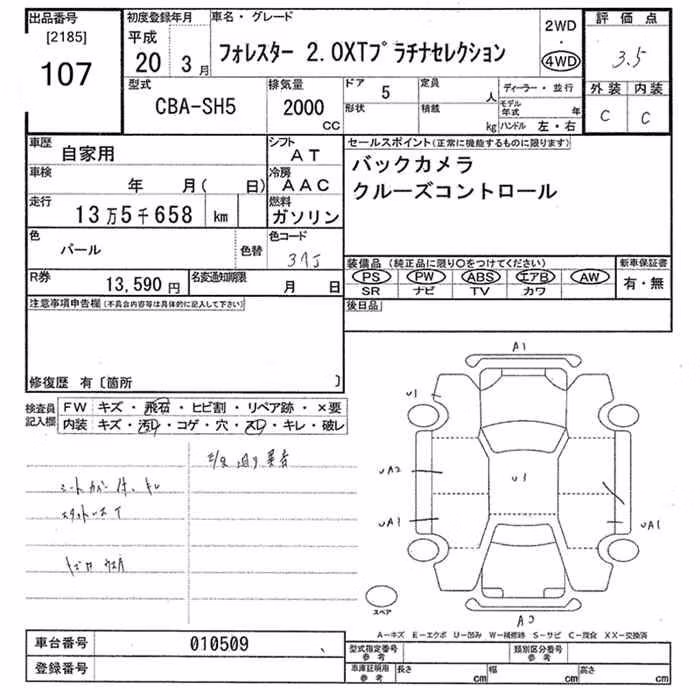 出品番号 初度登録年月 車名・グレード 評価点
[2185] 平成 2WD
107 20 3月 フォレスター 2.0XTプラチナセレクション ・ 4WD 3.5
型式 排気量 ドア 5 定員 人 ディーラー・並行 外装 内装
CBA-SH5 2000 CC 形状 積載 kg モデル年式 年 C C
ハンドル 左・右
車歴 自家用 シフト AT セールスポイント(正常に機能するものに限ります)
車検 年 月( 日) 冷房 AAC バックカメラ
走行 13万5千658 km 燃料 ガソリン クルーズコントロール
色 パール 色替 色コード 37J
装備品 (純正品に限り○をつけてください) 新車保証書
R券 13,590円 名変通知期限 月 日 PS PW ABS エアB AW 有・無
SR ナビ TV カワ
注意事項申告欄(不具合内容等は具体的に記入して下さい) 後日品
修復歴 有〔箇所 〕
検査員記入欄 FW キズ・飛石・ヒビ割・リペア跡・×要
内装 キズ・汚レ・コゲ・穴・スレ・キレ・破レ
A1
U1
UA2
U1
UA1
UA1
スペア
A2
A−キズ E−エクボ U−凹み W−補修跡 S−サビ C−腐食 XX−交換済
車台番号 010509
登録番号
型式指定番号 参考 類別区分番号 参考
車庫証明用 参考 長さ cm 幅 cm 高さ cm